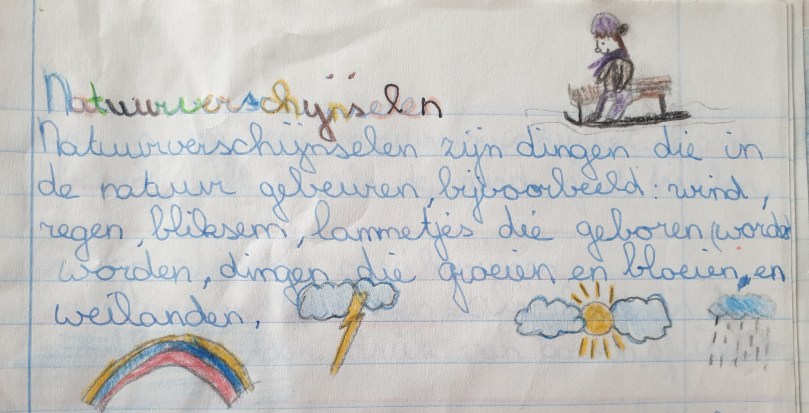 Natuurverschijnselen
Natuurverschijnselen zijn dingen die in
de natuur gebeuren, bijvoorbeeld: wind,
regen, bliksem, lammetjes die geboren (worde
worden, dingen die groeien en bloeien, en
weilanden,